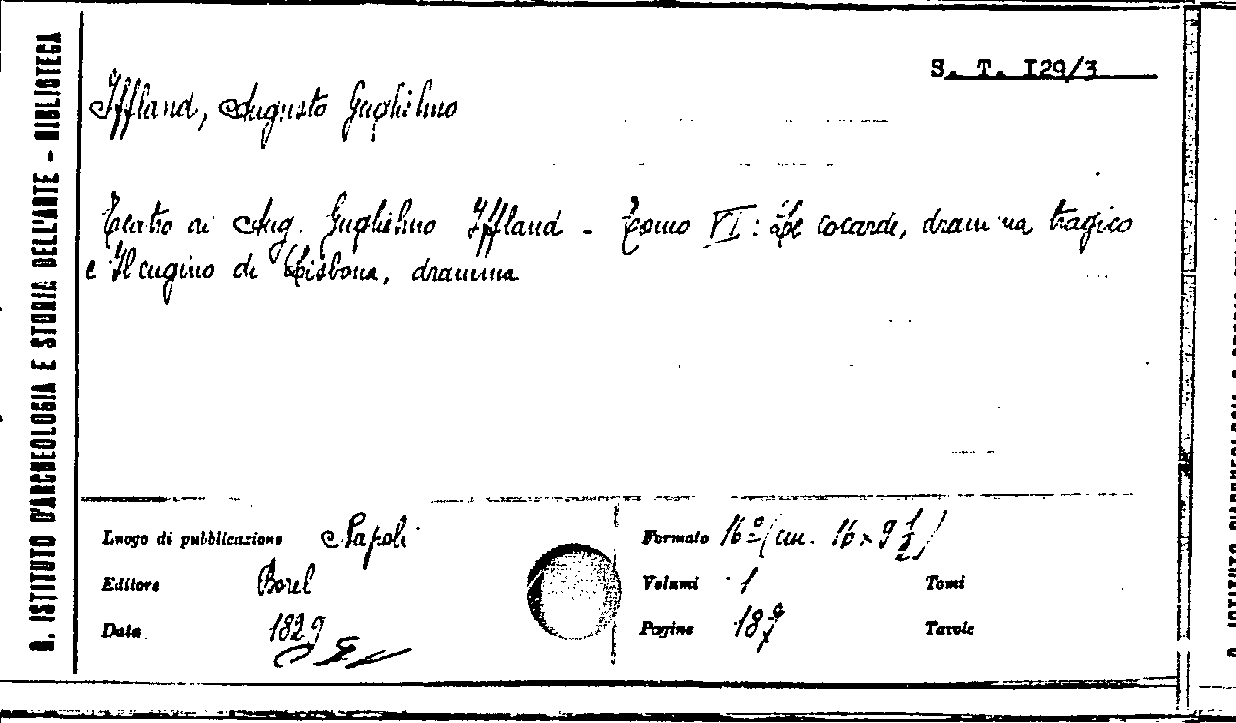 S. T. I29/3
Iffland, Augusto Guglielmo
Teatro di Aug. Guglielmo Iffland - Tomo VI: Le cocarde, dramma tragico
e Il cugino di Lisbona, dramma
R. ISTITUTO D'ARCHEOLOGIA E STORIA DELL'ARTE - BIBLIOTECA
Luogo di pubblicazione Napoli
Editore Borel
Data 1829
Formato 16º (cm. 16 x 9 ½)
Volumi 1 Tomi
Pagine Tavole